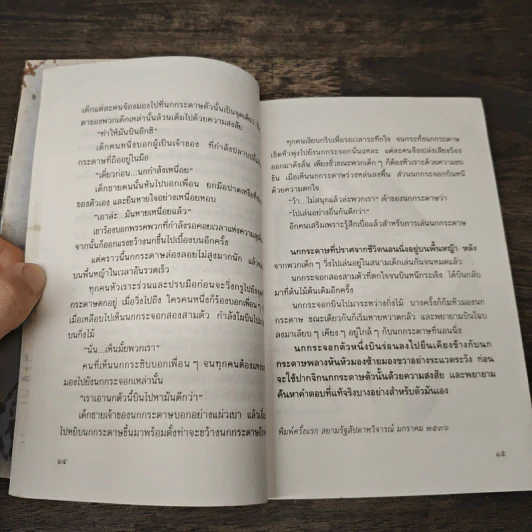 เด็กแต่ละคนจ้องมองไปที่นกกระดาษตัวนั้นเป็นจุดเดียว
ตาของพวกเด็กเหล่านั้นล้วนเต็มไปด้วยความสงสัย
"ทำให้มันบินอีกซิ"
เด็กคนหนึ่งบอกผู้เป็นเจ้าของ ที่กำลังปลาบปลื้ม
กระดาษที่ถืออยู่ในมือ
"เดี๋ยวก่อน...นกกำลังเหนื่อย"
เด็กชายคนนั้นหันไปบอกเพื่อน ยกมือปาดเหงื่อที่
ของตัวเอง และยืนหายใจอย่างเหนื่อยหอบ
"เอาล่ะ...มันหายเหนื่อยแล้ว"
เขาร้องบอกพรรคพวกที่กำลังรอคอยเวลาแห่งความ
จากนั้นก็ออกแรงขว้างนกขึ้นไปเบื้องบนอีกครั้ง
แต่คราวนี้นกกระดาษล่องลอยไม่สูงมากนัก แล้ว
บนพื้นหญ้าในเวลาอันรวดเร็ว
ทุกคนหัวเราะร่วนและปรบมือก่อนจะวิ่งกรูไปยัง
กระดาษตกอยู่ เมื่อวิ่งไปถึง ใครคนหนึ่งก็ร้องบอกเพื่อน ๆ
เมื่อเหลือบไปเห็นนกกระจอกสองสามตัว กำลังโผบิน
บนกิ่งไม้
"นั่น...เห็นมั้ยพวกเรา"
คนที่เห็นนกกระซิบบอกเพื่อน ๆ จนทุกคนต้อง
มองไปยังนกกระจอกเหล่านั้น
"เราเอานกตัวนี้บินไปหามันดีกว่า"
เด็กชายเจ้าของนกกระดาษบอกอย่างแผ่วเบา แล้ว
ไปหยิบนกกระดาษขึ้นมาพร้อมตั้งท่าจะขว้างนกกระดาษ
๑๔
ทุกคนเงียบกริบเพื่อรอเวลาระทึกใจ จนกระทั่งนกกระดาษ
เชิดหัวพุ่งไปยังนกกระจอกนั่นแหละ แต่ละคนจึงเปล่งเสียงร้อง
ออกมาดังลั่น เพียงชั่วขณะพวกเด็ก ๆ ก็ต้องหัวเราะด้วยความขบ
ขัน เมื่อเห็นนกกระดาษร่วงหล่นลงพื้น ส่วนนกกระจอกบินหนี
ด้วยความตกใจ
"ว้า...ไม่สนุกแล้วล่ะพวกเรา" เจ้าของนกกระดาษว่า
"ไปเล่นอย่างอื่นกันดีกว่า"
อีกคนเสริมเพราะรู้สึกเบื่อแล้วสำหรับการเล่นนกกระดาษ
นกกระดาษที่ปราศจากชีวิตนอนนิ่งอยู่บนพื้นหญ้า หลัง
จากพวกเด็ก ๆ วิ่งไปเล่นอยู่ในสนามเด็กเล่นกันจนหมดแล้ว
นกกระจอกสองสามตัวที่ตกใจจนบินหนีกระเจิง ได้บินกลับ
มาที่ต้นไม้ต้นเดิมอีกครั้ง
นกกระจอกบินไปมาระหว่างกิ่งไม้ บางครั้งก็ก้มหัวมองนก
กระดาษ ขณะเดียวกันก็เริ่มหายหวาดกลัว และพยายามบินโฉบ
ลงมาเลียบ ๆ เคียง ๆ อยู่ใกล้ ๆ กับนกกระดาษที่นอนนิ่ง
นกกระจอกตัวหนึ่งบินร่อนลงไปยืนเคียงข้างกับนก
กระดาษพลางหันหัวมองซ้ายมองขวาอย่างระแวดระวัง ก่อน
จะใช้ปากจิกนกกระดาษตัวนั้นด้วยความสงสัย และพยายาม
ค้นหาคำตอบที่แท้จริงบางอย่างสำหรับตัวมันเอง
พิมพ์ครั้งแรก สยามรัฐสัปดาหวิจารณ์ มกราคม ๒๕๓๖
๑๕